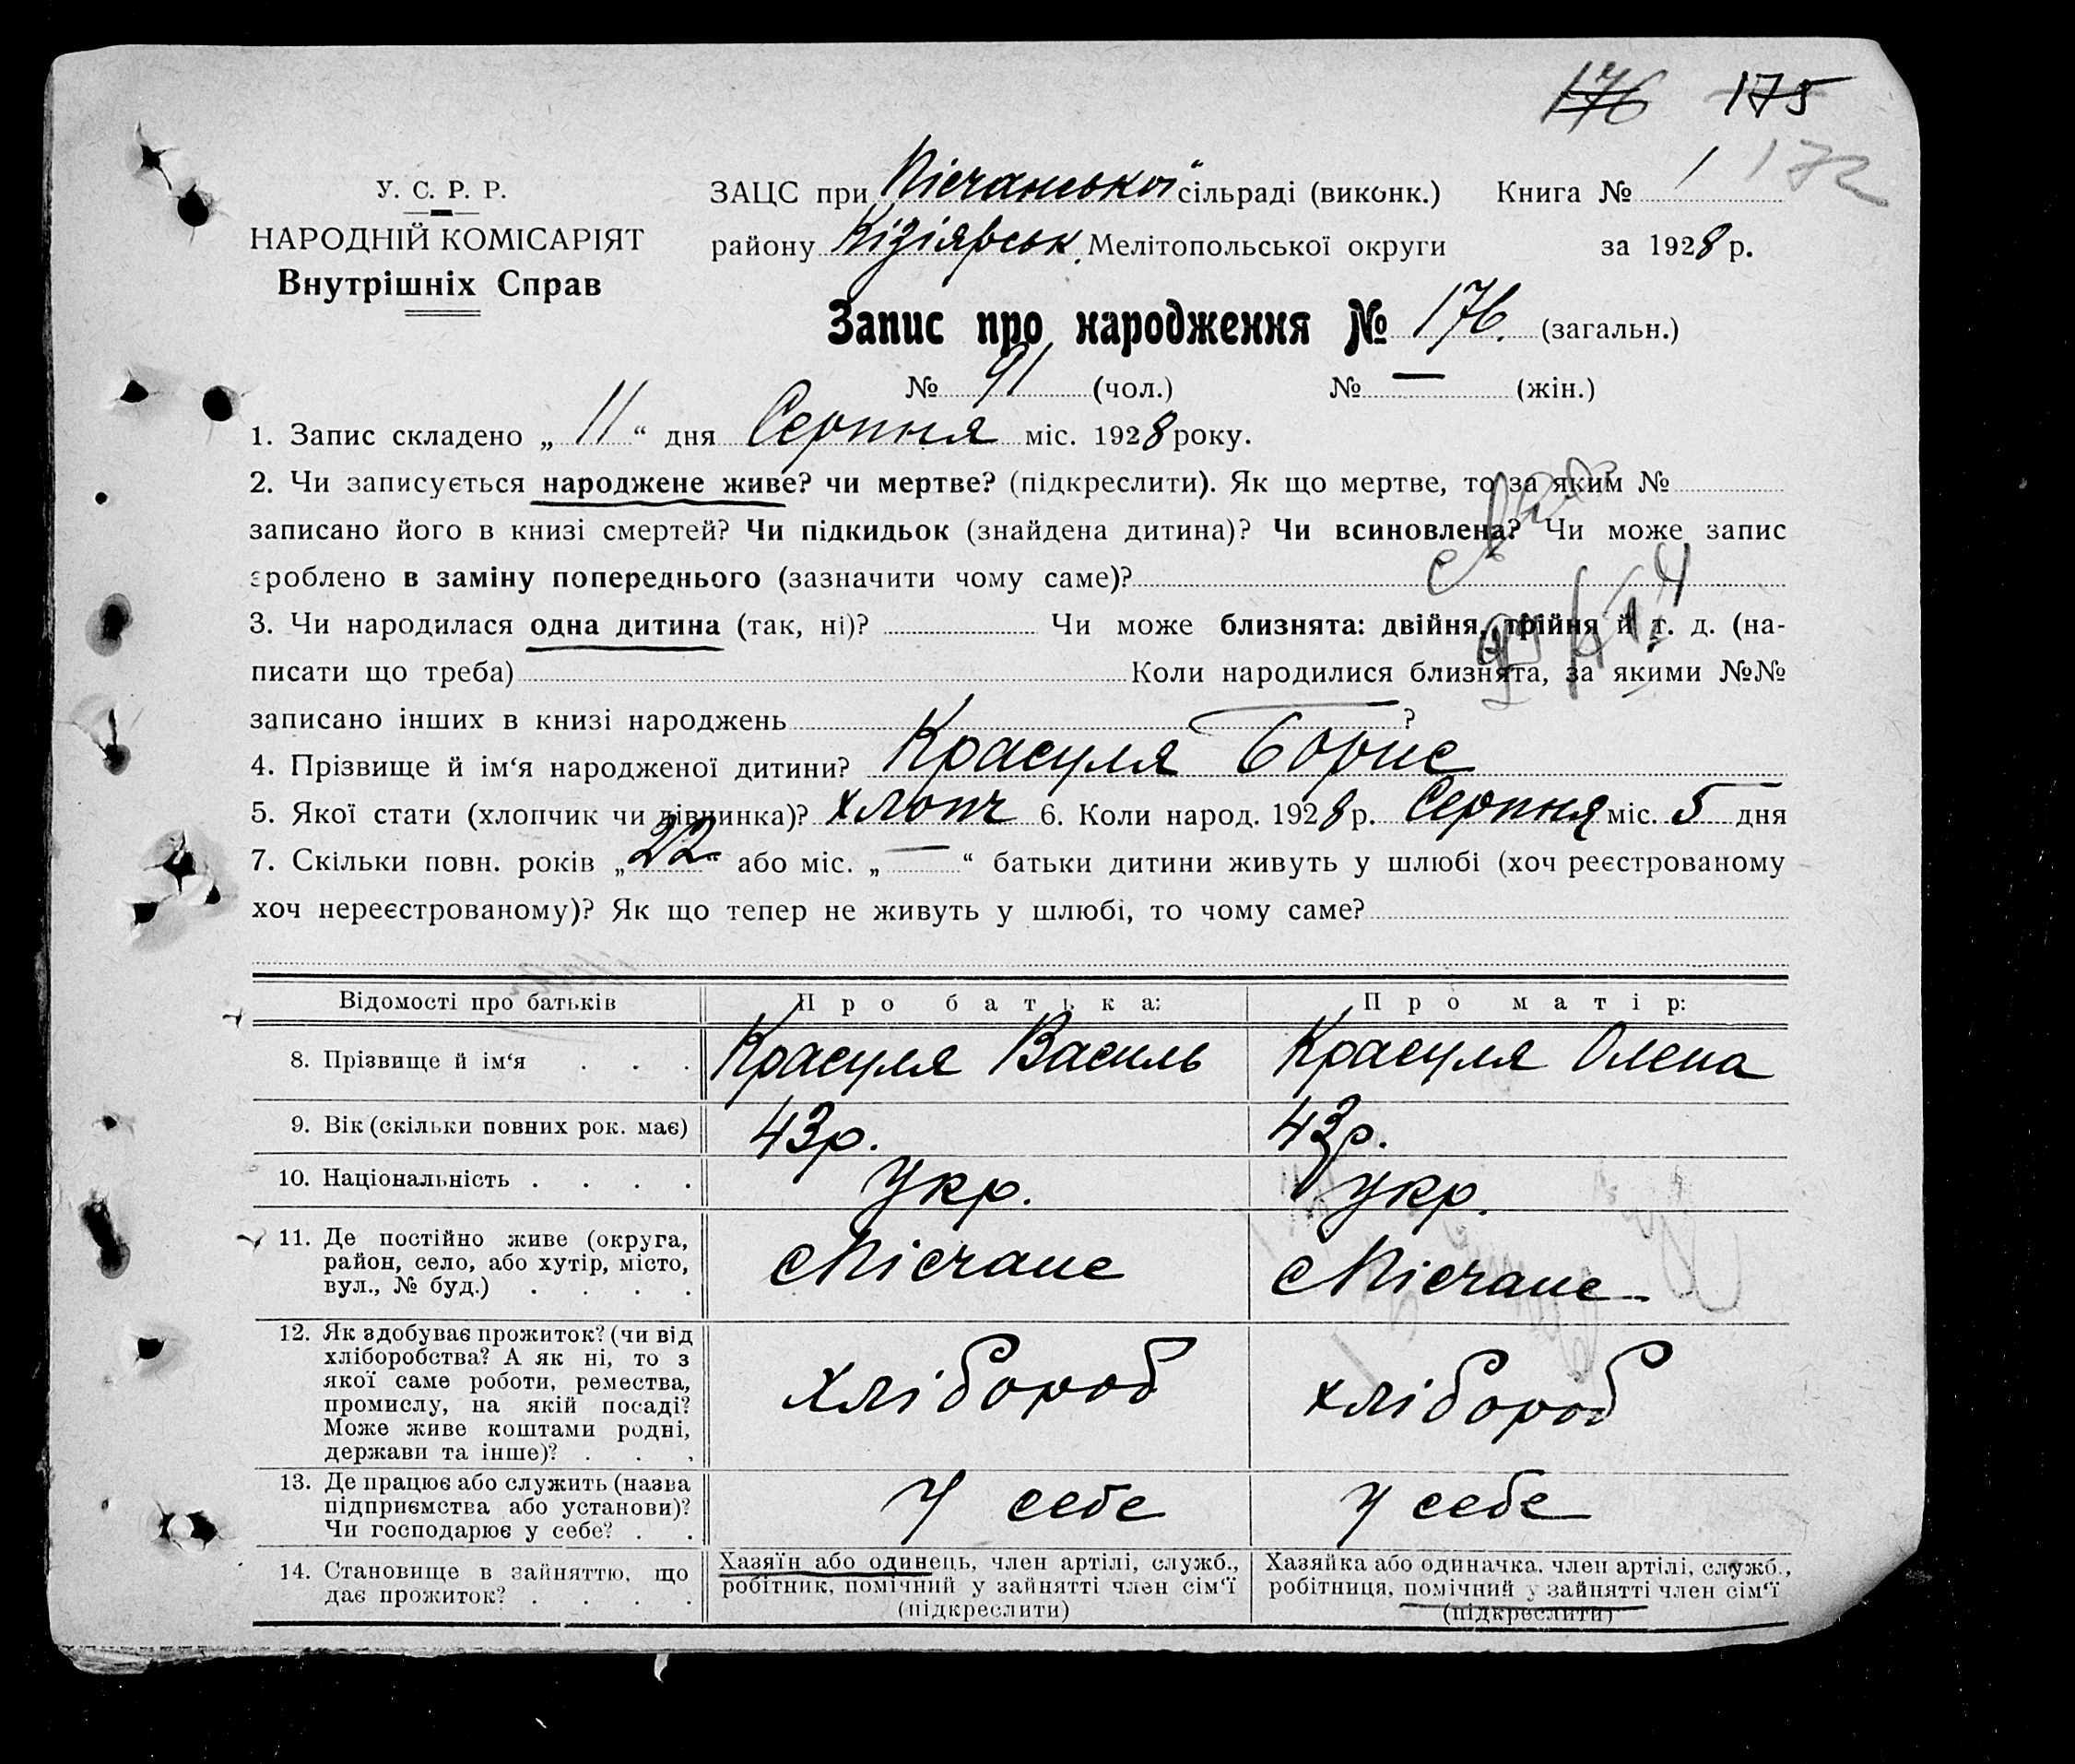 176 175
172
У. С. Р. Р.
НАРОДНІЙ КОМІСАРІЯТ
Внутрішніх Справ
ЗАЦС при Пісчанської сільраді (виконк.) Книга № 1
району Кізіярськ. Мелітопольської округи за 1928 р.
Запис про народження № 176. (загальн.)
№ 91 (чол.) № — (жін.)
1. Запис складено „ 11 “ дня Серпня міс. 1928 року.
2. Чи записується народжене живе? чи мертве? (підкреслити). Як що мертве, то за яким №
записано його в книзі смертей? Чи підкидьок (знайдена дитина)? Чи всиновлена? Чи може запис
зроблено в заміну попереднього (зазначити чому саме)?
3. Чи народилася одна дитина (так, ні)? Чи може близнята: двійня, трійня й т. д. (на-
писати що треба) Коли народилися близнята, за якими №№
записано інших в книзі народжень ?
4. Прізвище й ім‘я народженої дитини? Красуля Борис
5. Якої стати (хлопчик чи дівчинка)? хлопч 6. Коли народ. 1928 р. Серпня міс. 5 дня
7. Скільки повн. років „ 22 “ або міс. „ — “ батьки дитини живуть у шлюбі (хоч реєстрованому
хоч нереєстрованому)? Як що тепер не живуть у шлюбі, то чому саме?
Відомості про батьків Про батька: Про матір:
8. Прізвище й ім‘я . . . Красуля Василь Красуля Олена
9. Вік (скільки повних рок. має) 43р. 43р.
10. Національність . . . . Укр. Укр.
11. Де постійно живе (округа,
район, село, або хутір, місто,
вул., № буд.) . . . .
с Пісчане с Пісчане
12. Як здобуває прожиток? (чи від
хліборобства? А як ні, то з
якої саме роботи, ремества,
промислу, на якій посаді?
Може живе коштами родні,
держави та інше)? . . .
хлібороб хлібороб
13. Де працює або служить (назва
підприємства або установи)?
Чи господарює у себе? . .
У себе У себе
14. Становище в зайняттю, що
дає прожиток? . . . .
Хазяїн або одинець, член артілі, служб.,
робітник, помічний у зайнятті член сім‘ї
(підкреслити)
Хазяйка або одиначка, член артілі, служб.,
робітниця, помічний у зайнятті член сім‘ї
(підкреслити)